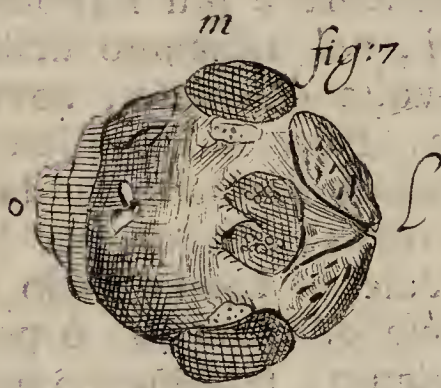 m
fig:7
o
L